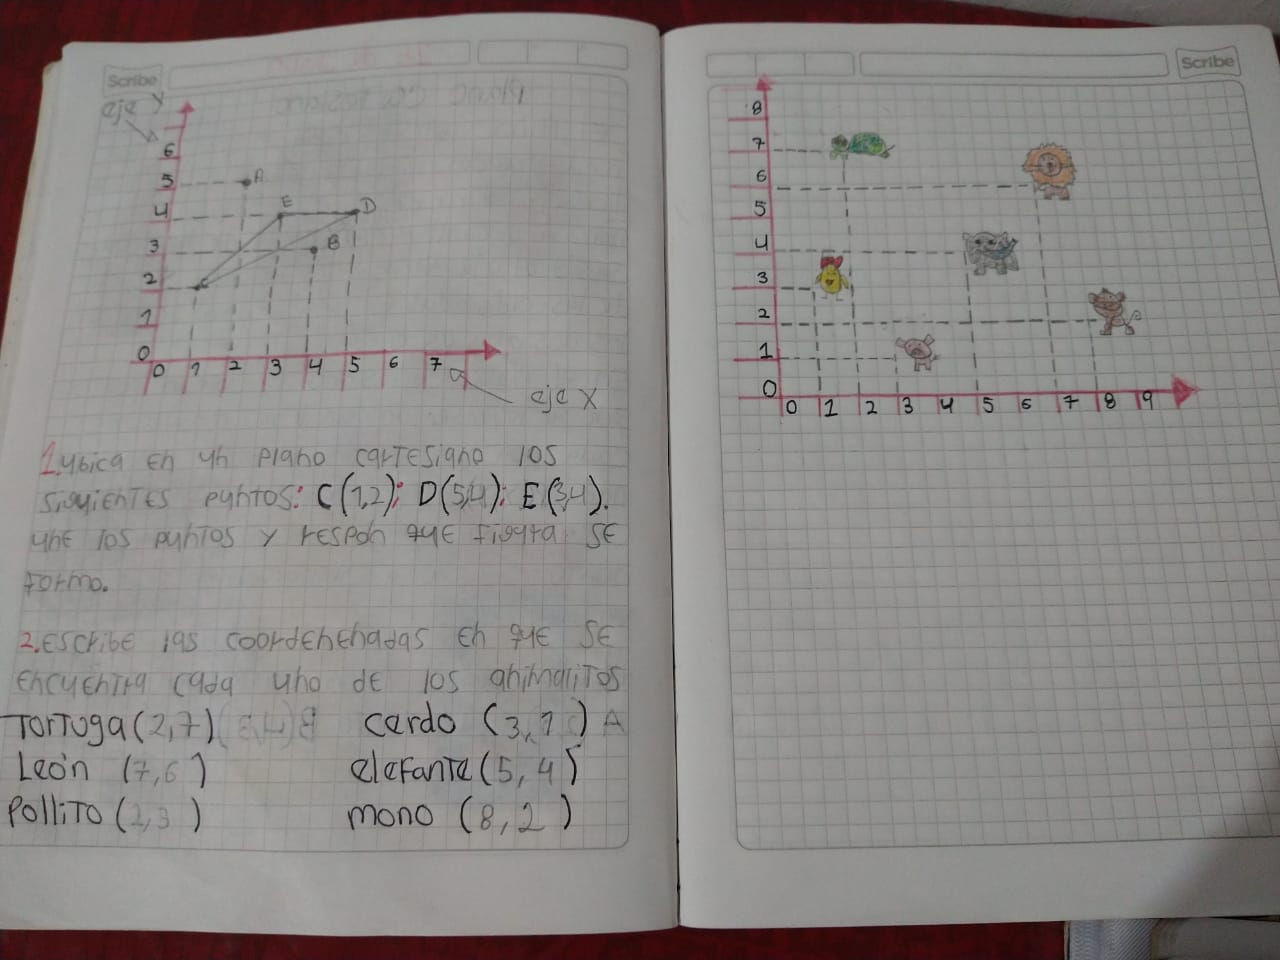 Scribe
eje Y
6
5 A
4 E D
3 B
2 C
1
0
0 1 2 3 4 5 6 7
eje X
1. Ubica en un plano cartesiano los
siguientes puntos: C(1,2); D(5,4); E(3,4).
une los puntos y respon que figura se
formo.
2. Escribe las coordenenadas en que se
encuentra cada uno de los animalitos
Tortuga (2,7) cerdo (3,1)
León (7,6) elefante (5,4)
Pollito (2,3) mono (8,2)
Scribe
8
7
6
5
4
3
2
1
0
0 1 2 3 4 5 6 7 8 9